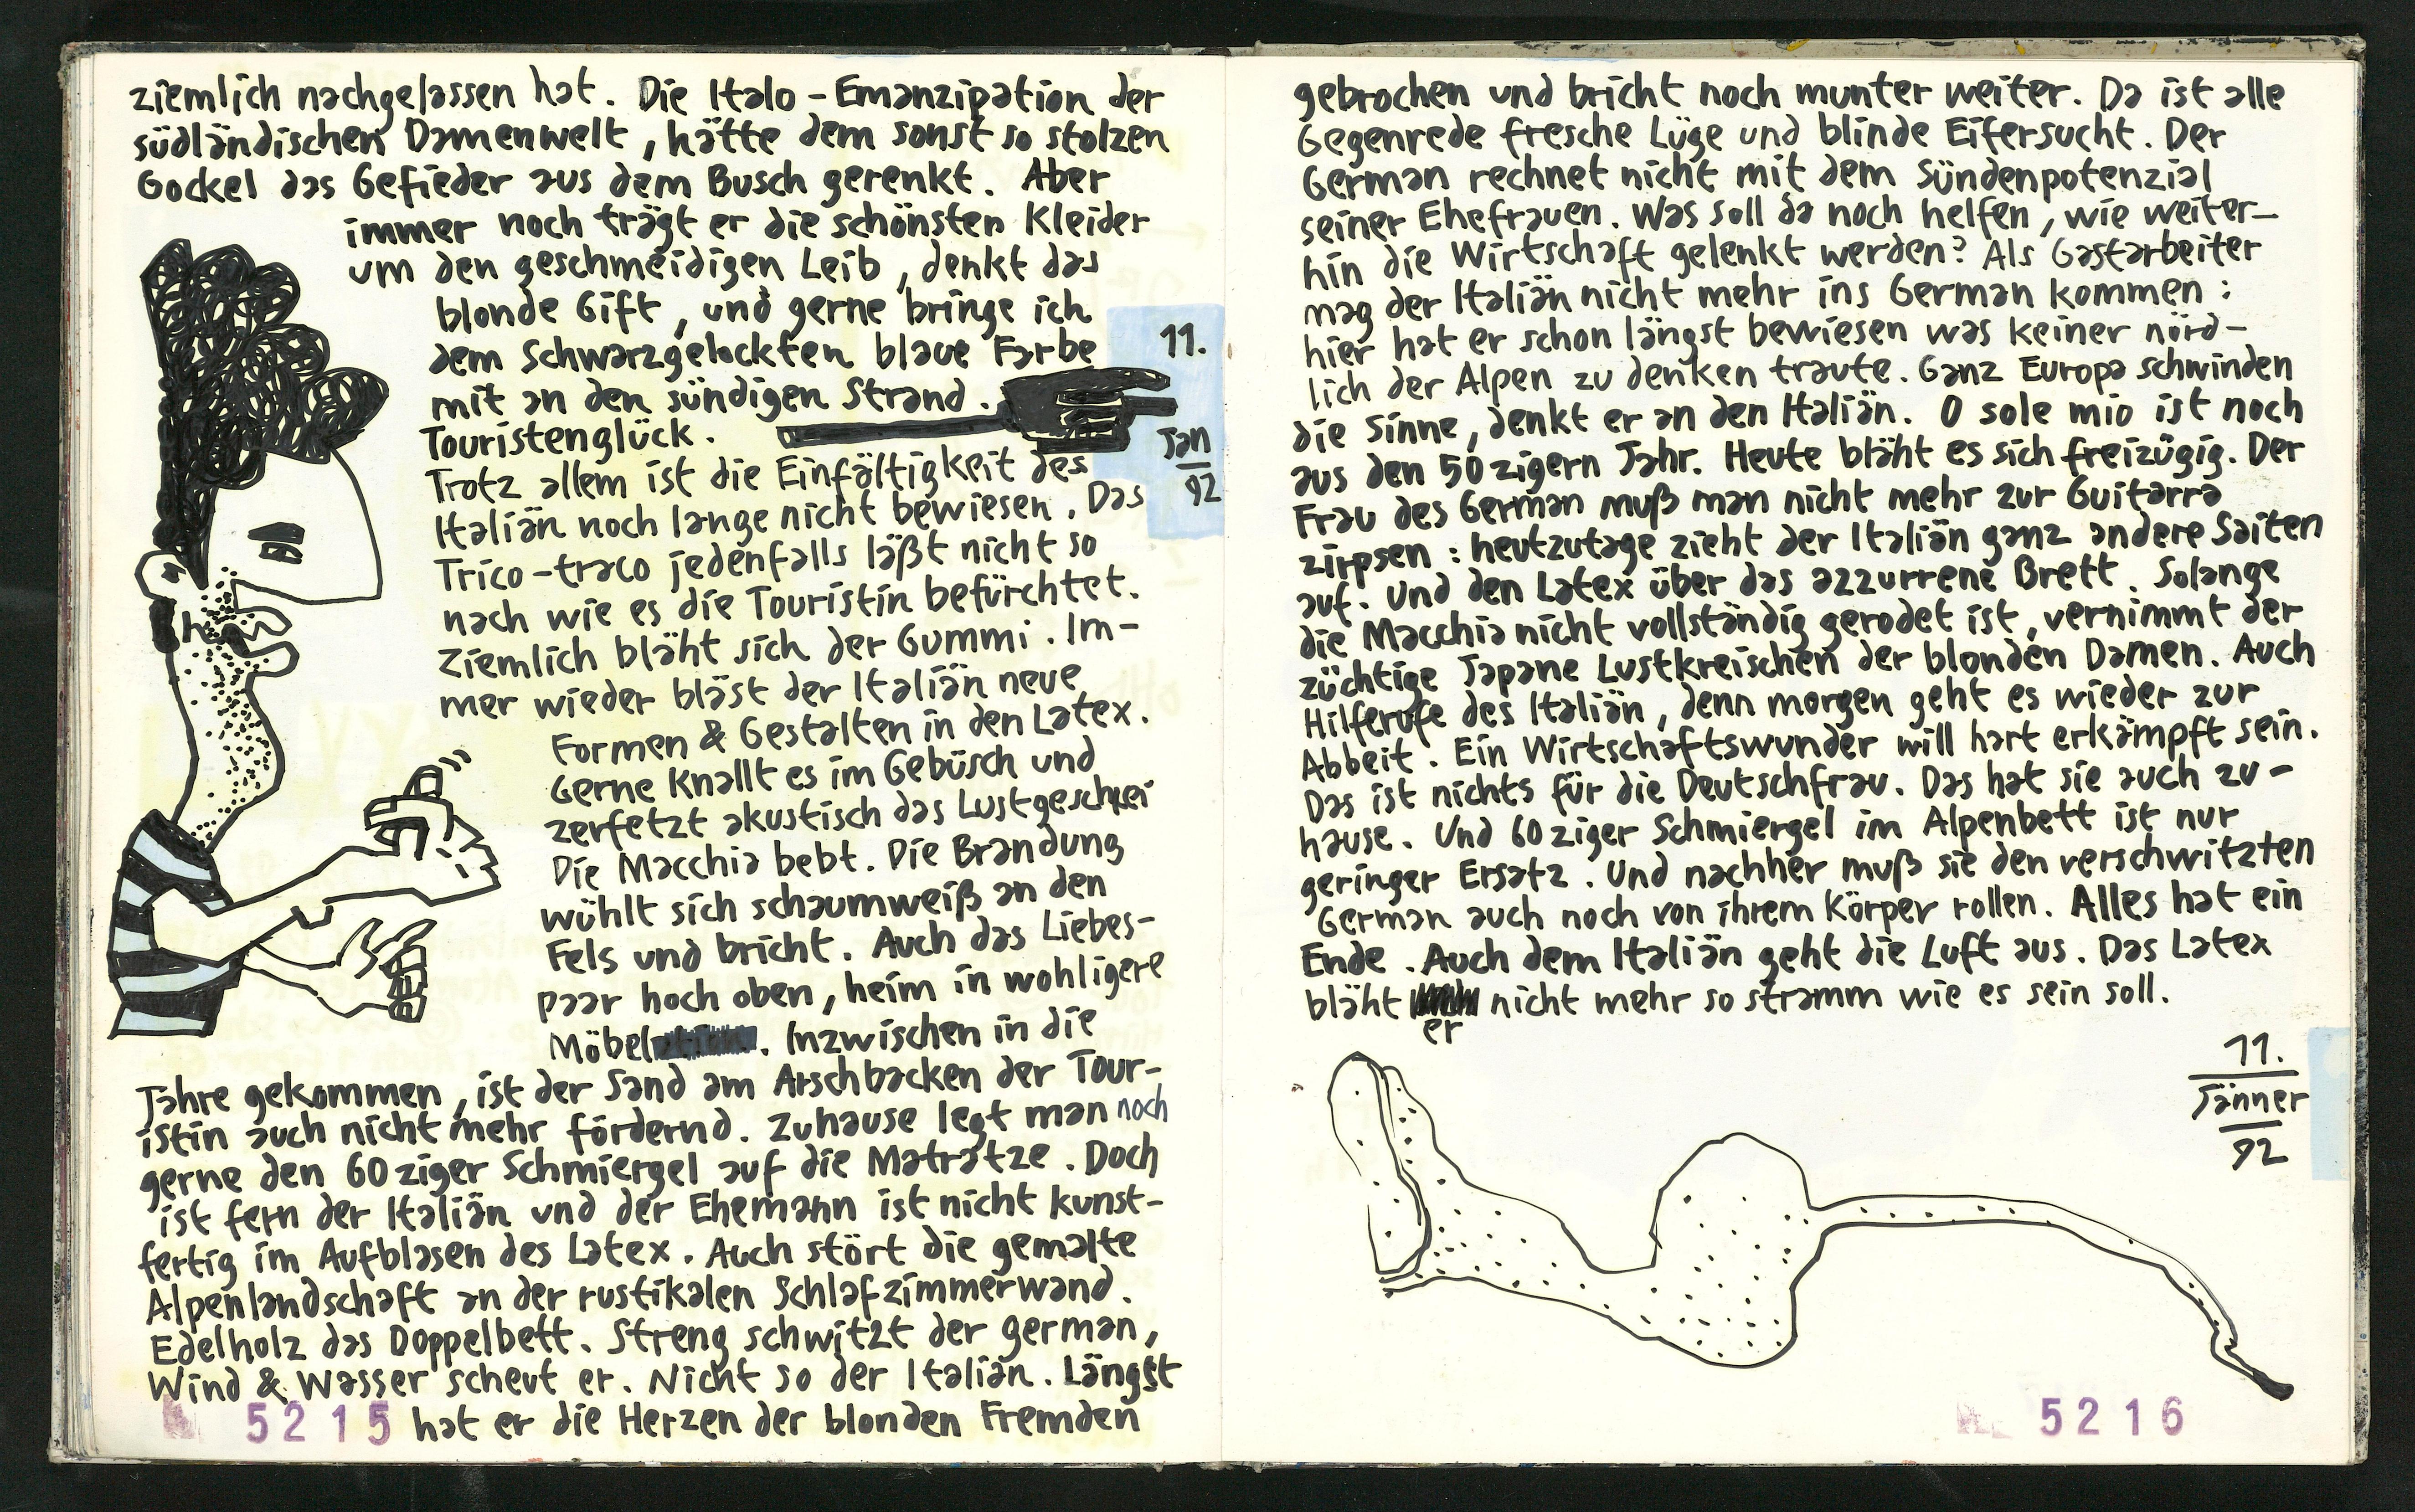 ziemlich nachgelassen hat. Die Italo-Emanzipation der
südländischen Damenwelt, hätte dem sonst so stolzen
Gockel das Gefieder aus dem Busch gerenkt. Aber
immer noch trägt er die schönsten Kleider
um den geschmeidigen Leib, denkt das
blonde Gift, und gerne bringe ich
dem Schwarzgelockten blaue Farbe
mit an den sündigen Strand.
Touristenglück.
11.
Jan
92
Trotz allem ist die Einfältigkeit des
Italiän noch lange nicht bewiesen. Das
Trico-traco jedenfalls läßt nicht so
nach wie es die Touristin befürchtet.
Ziemlich bläht sich der Gummi. Im-
mer wieder bläst der Italiän neue
Formen & Gestalten in den Latex.
Gerne knallt es im Gebüsch und
zerfetzt akustisch das Lustgeschrei
Die Macchia bebt. Die Brandung
wühlt sich schaumweiß an den
Fels und bricht. Auch das Liebes-
paar hoch oben, heim in wohligere
Möbel. Inzwischen in die
Jahre gekommen, ist der Sand am Arschbacken der Tour-
istin auch nicht mehr fördernd. Zuhause legt man noch
gerne den 60ziger Schmiergel auf die Matratze. Doch
ist fern der Italiän und der Ehemann ist nicht kunst-
fertig im Aufblasen des Latex. Auch stört die gemalte
Alpenlandschaft an der rustikalen Schlafzimmerwand.
Edelholz das Doppelbett. Streng schwitzt der german,
Wind & Wasser scheut er. Nicht so der Italiän. Längst
5215 hat er die Herzen der blonden Fremden
gebrochen und bricht noch munter weiter. Da ist alle
Gegenrede fresche Lüge und blinde Eifersucht. Der
German rechnet nicht mit dem Sündenpotenzial
seiner Ehefrauen. Was soll da noch helfen, wie weiter-
hin die Wirtschaft gelenkt werden? Als Gastarbeiter
mag der Italiän nicht mehr ins German kommen:
hier hat er schon längst bewiesen was keiner nörd-
lich der Alpen zu denken traute. Ganz Europa schwinden
die Sinne, denkt er an den Italiän. O sole mio ist noch
aus den 50zigern Jahr. Heute bläht es sich freizügig. Der
Frau des German muß man nicht mehr zur Guitarra
zirpsen: heutzutage zieht der Italiän ganz andere Saiten
auf. Und den Latex über das azzurrene Brett. Solange
die Macchia nicht vollständig gerodet ist, vernimmt der
züchtige Japane Lustkreischen der blonden Damen. Auch
Hilferufe des Italiän, denn morgen geht es wieder zur
Abbeit. Ein Wirtschaftswunder will hart erkämpft sein.
Das ist nichts für die Deutschfrau. Das hat sie auch zu-
hause. Und 60ziger Schmiergel im Alpenbett ist nur
geringer Ersatz. Und nachher muß sie den verschwitzten
German auch noch von ihrem Körper rollen. Alles hat ein
Ende. Auch dem Italiän geht die Luft aus. Das Latex
bläht er nicht mehr so stramm wie es sein soll.
11.
Jänner
92
5216